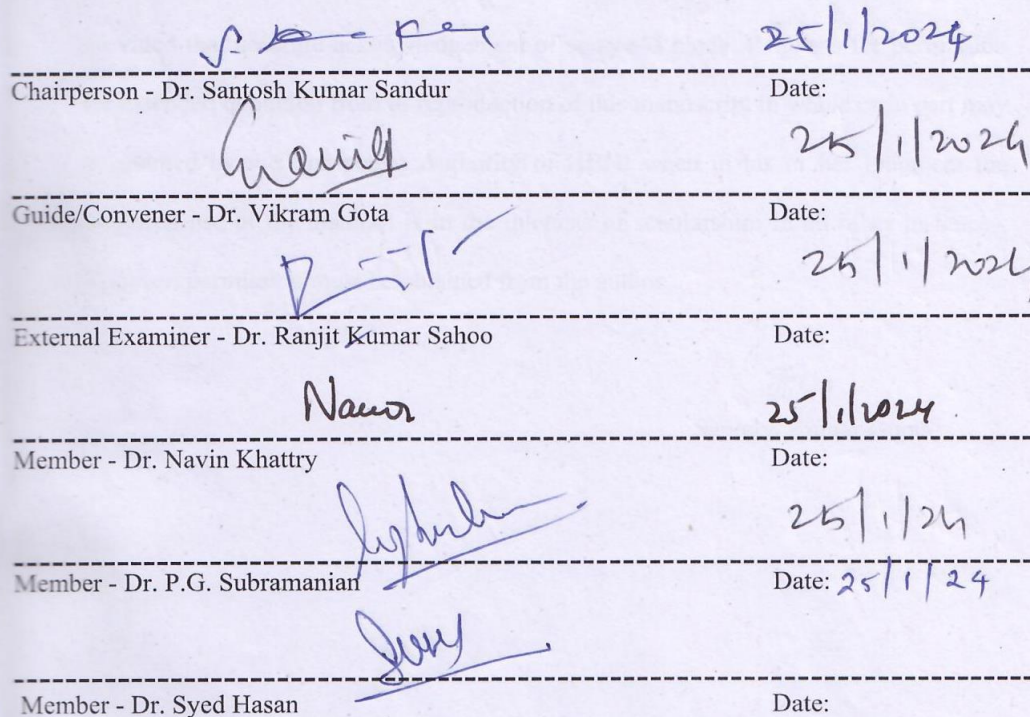 25/1/2024
Chairperson - Dr. Santosh Kumar Sandur Date:
25/1/2024
Guide/Convener - Dr. Vikram Gota Date:
25/1/202
External Examiner - Dr. Ranjit Kumar Sahoo Date:
25/1/2024
Member - Dr. Navin Khattry Date:
25/1/24
Member - Dr. P.G. Subramanian Date: 25/1/24
Member - Dr. Syed Hasan Date: